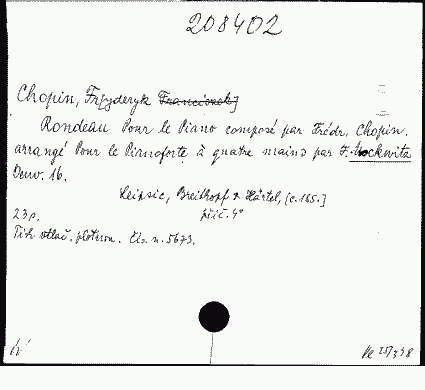 208402
Chopin, Fr[yderyk Franciszek]
Rondeau Pour le Piano composé par Frédr. Chopin.
arrangé Pour le Pianoforte à quatre mains par F. Mockwitz
Oeuv. 16.
Leipsic, Breitkopf & Härtel, [c. 185.]
23 p. příč. 4°
Tisk otlač. plotnou. Čís. n. 5673.